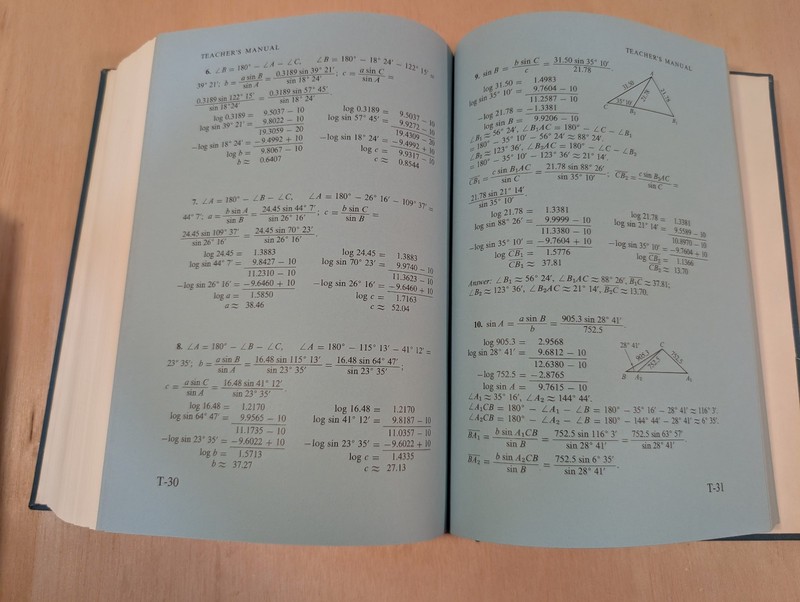 TEACHER'S MANUAL
6. ∠B = 180° − ∠A − ∠C, ∠B = 180° − 18° 24′ − 122° 15′ =
39° 21′; b = a sin B / sin A = 0.3189 sin 39° 21′ / sin 18° 24′; c = a sin C / sin A =
0.3189 sin 122° 15′ / sin 18°24′ = 0.3189 sin 57° 45′ / sin 18° 24′.
log 0.3189 = 9.5037 − 10 log 0.3189 = 9.5037 − 10
log sin 39° 21′ = 9.8022 − 10 log sin 57° 45′ = 9.9272 − 10
19.3059 − 20 19.4309 − 20
−log sin 18° 24′ = −9.4992 + 10 −log sin 18° 24′ = −9.4992 + 10
log b = 9.8067 − 10 log c = 9.9317 − 10
b ≈ 0.6407 c ≈ 0.8544
7. ∠A = 180° − ∠B − ∠C, ∠A = 180° − 26° 16′ − 109° 37′ =
44° 7′; a = b sin A / sin B = 24.45 sin 44° 7′ / sin 26° 16′; c = b sin C / sin B =
24.45 sin 109° 37′ / sin 26° 16′ = 24.45 sin 70° 23′ / sin 26° 16′.
log 24.45 = 1.3883 log 24.45 = 1.3883
log sin 44° 7′ = 9.8427 − 10 log sin 70° 23′ = 9.9740 − 10
11.2310 − 10 11.3623 − 10
−log sin 26° 16′ = −9.6460 + 10 −log sin 26° 16′ = −9.6460 + 10
log a = 1.5850 log c = 1.7163
a ≈ 38.46 c ≈ 52.04
8. ∠A = 180° − ∠B − ∠C, ∠A = 180° − 115° 13′ − 41° 12′ =
23° 35′; b = a sin B / sin A = 16.48 sin 115° 13′ / sin 23° 35′ = 16.48 sin 64° 47′ / sin 23° 35′;
c = a sin C / sin A = 16.48 sin 41° 12′ / sin 23° 35′
log 16.48 = 1.2170 log 16.48 = 1.2170
log sin 64° 47′ = 9.9565 − 10 log sin 41° 12′ = 9.8187 − 10
11.1735 − 10 11.0357 − 10
−log sin 23° 35′ = −9.6022 + 10 −log sin 23° 35′ = −9.6022 + 10
log b = 1.5713 log c = 1.4335
b ≈ 37.27 c ≈ 27.13
T-30
TEACHER'S MANUAL
9. sin B = b sin C / c = 31.50 sin 35° 10′ / 21.78
log 31.50 = 1.4983
log sin 35° 10′ = 9.7604 − 10
11.2587 − 10
−log 21.78 = −1.3381
log sin B = 9.9206 − 10
A
31.50 21.78 21.78
C 35° 10′ B₁ B₂
∠B₁ ≈ 56° 24′, ∠B₁AC = 180° − ∠C − ∠B₁
= 180° − 35° 10′ − 56° 24′ ≈ 88° 24′.
∠B₂ ≈ 123° 36′, ∠B₂AC = 180° − ∠C − ∠B₂
= 180° − 35° 10′ − 123° 36′ ≈ 21° 14′.
CB₁ = c sin B₁AC / sin C = 21.78 sin 88° 26′ / sin 35° 10′; CB₂ = c sin B₂AC / sin C =
21.78 sin 21° 14′ / sin 35° 10′.
log 21.78 = 1.3381 log 21.78 = 1.3381
log sin 88° 26′ = 9.9999 − 10 log sin 21° 14′ = 9.5589 − 10
11.3380 − 10 10.8970 − 10
−log sin 35° 10′ = −9.7604 + 10 −log sin 35° 10′ = −9.7604 + 10
log CB₁ = 1.5776 log CB₂ = 1.1366
CB₁ ≈ 37.81 CB₂ ≈ 13.70
Answer: ∠B₁ ≈ 56° 24′, ∠B₁AC ≈ 88° 26′, B₁C ≈ 37.81;
∠B₂ ≈ 123° 36′, ∠B₂AC ≈ 21° 14′, B₂C ≈ 13.70.
10. sin A = a sin B / b = 905.3 sin 28° 41′ / 752.5.
log 905.3 = 2.9568
log sin 28° 41′ = 9.6812 − 10
12.6380 − 10
−log 752.5 = −2.8765
log sin A = 9.7615 − 10
28° 41′ C
905.3 752.5 752.5
B A₂ A₁
∠A₁ ≈ 35° 16′, ∠A₂ ≈ 144° 44′.
∠A₁CB = 180° − ∠A₁ − ∠B = 180° − 35° 16′ − 28° 41′ ≈ 116° 3′.
∠A₂CB = 180° − ∠A₂ − ∠B = 180° − 144° 44′ − 28° 41′ ≈ 6° 35′.
BA₁ = b sin A₁CB / sin B = 752.5 sin 116° 3′ / sin 28° 41′ = 752.5 sin 63° 57′ / sin 28° 41′
BA₂ = b sin A₂CB / sin B = 752.5 sin 6° 35′ / sin 28° 41′.
T-31